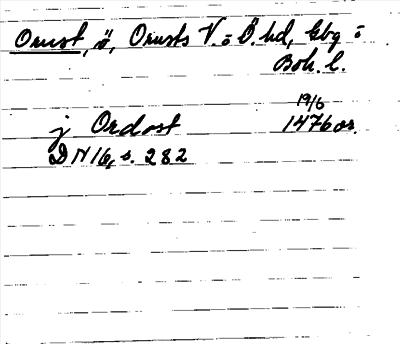 Orust, ö, Orusts V. o Ö. hd, Gbg o
Boh. l.
19/6
j Ordost 1476 or.
DN 16, s. 282